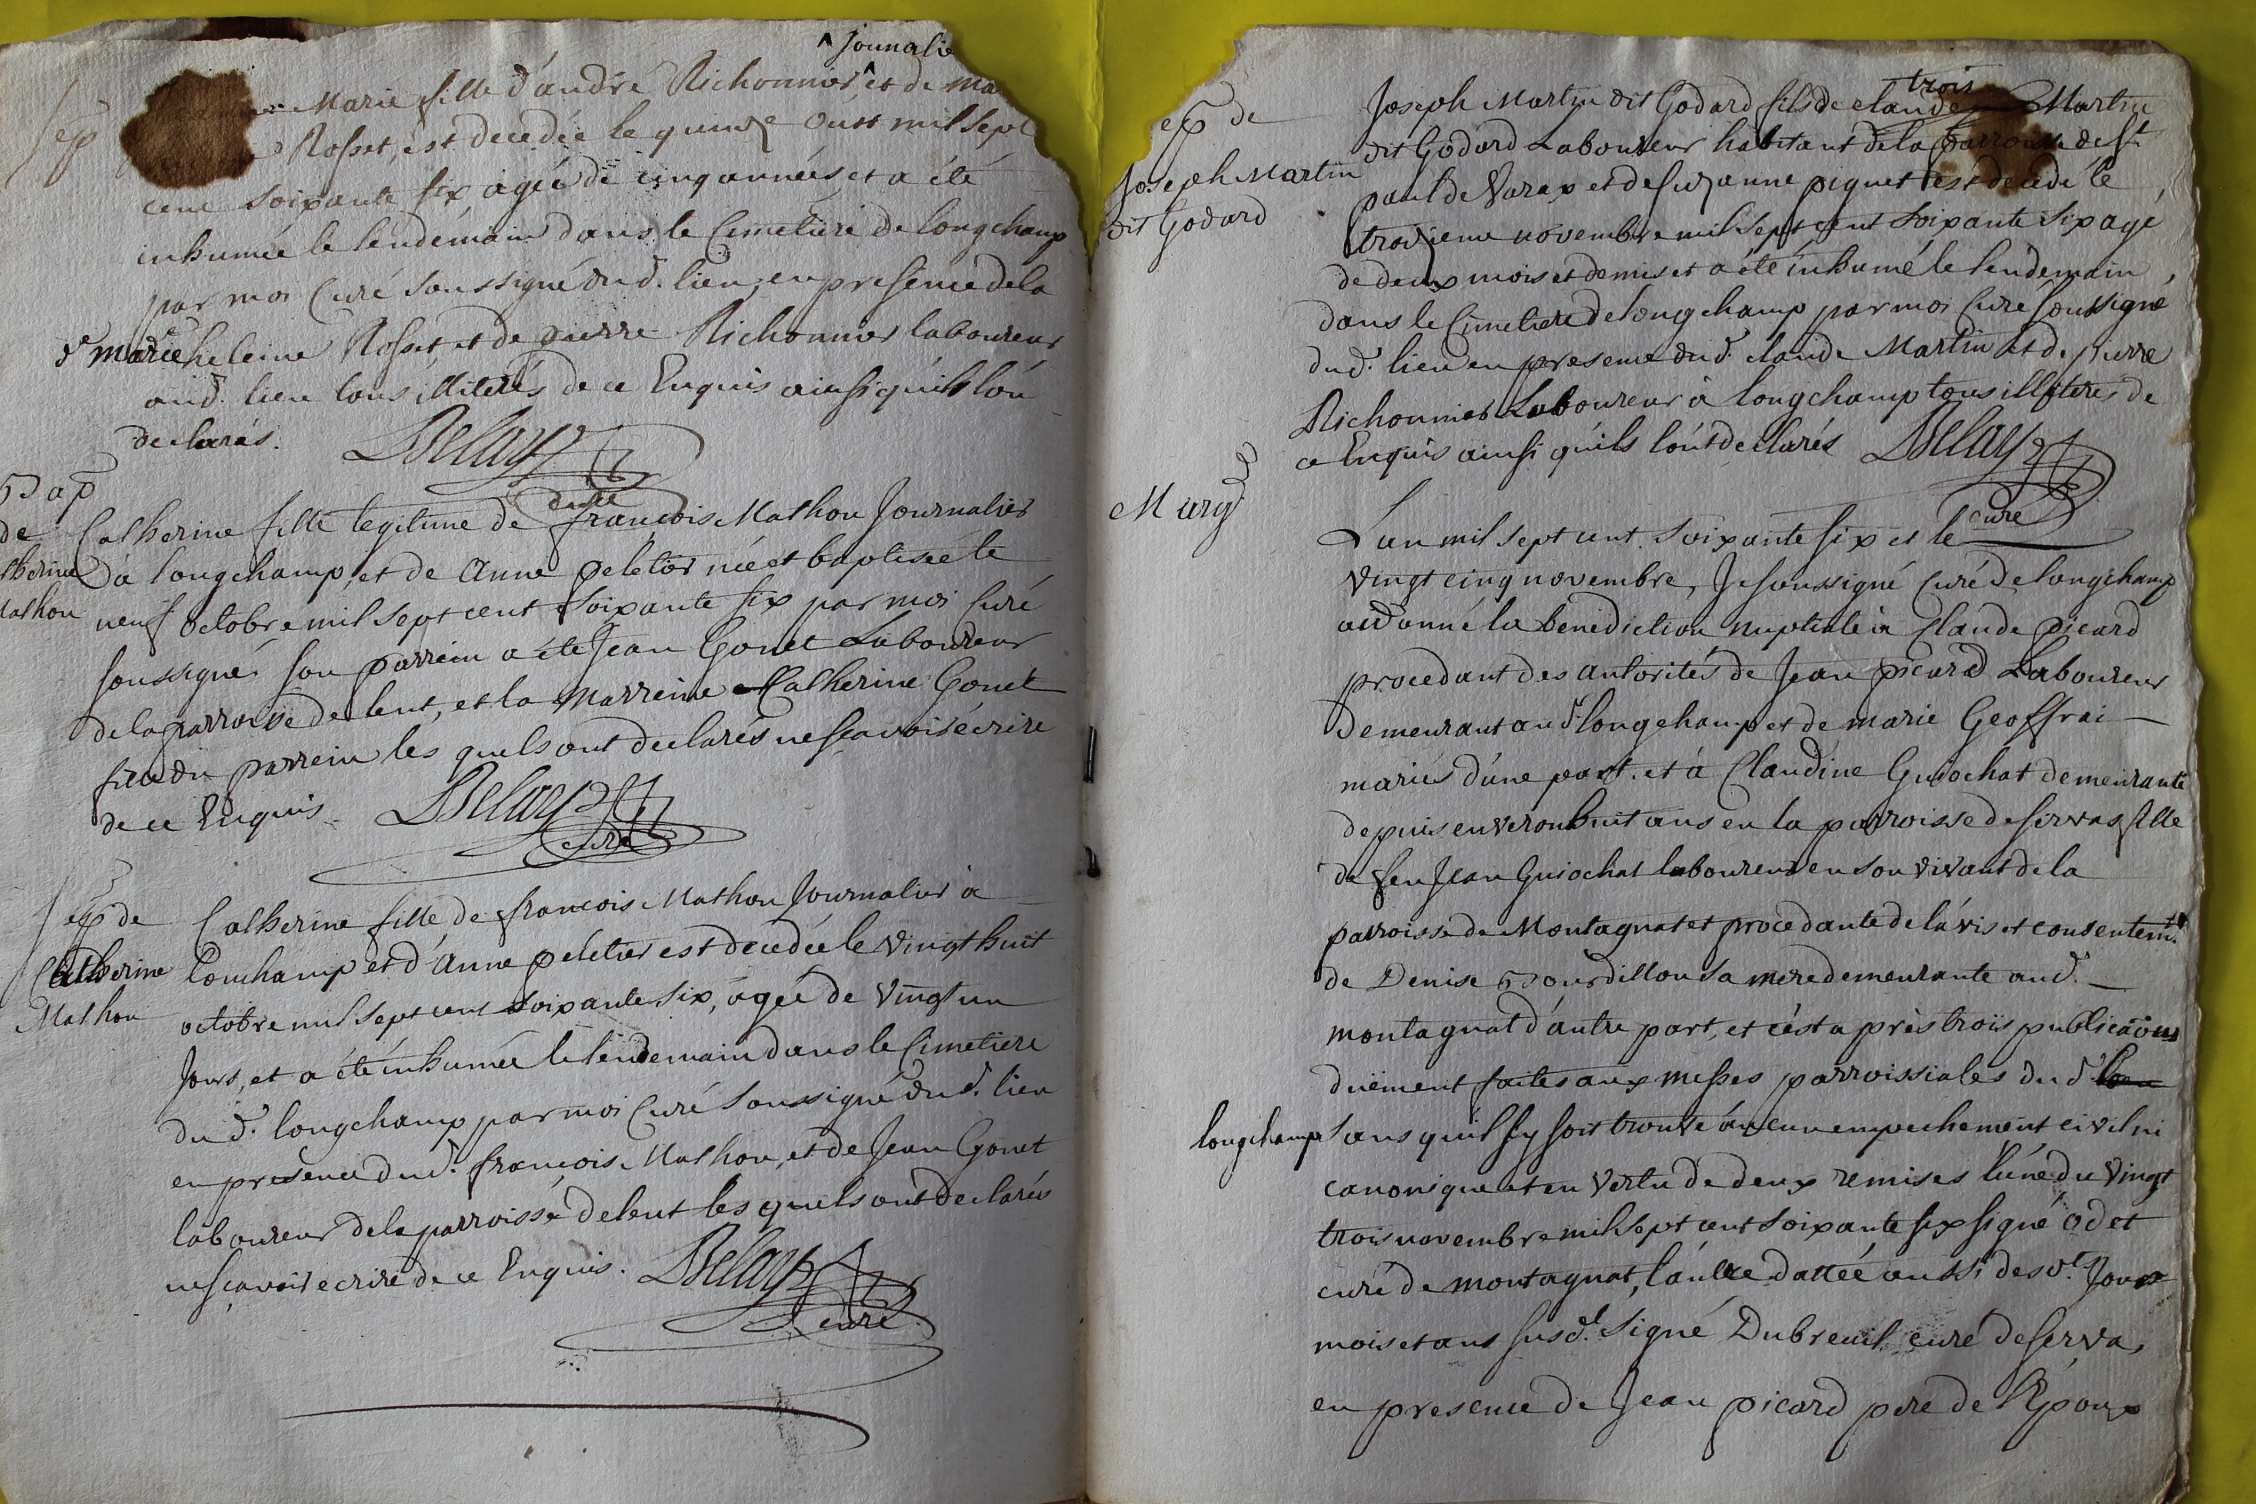 journalie
Marie fille d'andré Richonnier et de ma
Rosset, est decedée le quinze Oust mil sept
Sep
cent soixante six, agée de cinq années et a été
inhumée le lendemain dans le Cimetiere de longchamp
par moi Curé soussigné dud. lien, en presence de la
de marie heleine Rosset, et de pierre Richonnier laboureur
aud. lieu tous illiterés de ce Enquis ainsi qu'ils l'on
declarés.
Delay
curé
Bap
de
therine
Mathon
Catherine fille legitime de françois Mathon Journalier
à longchamp, et de Anne peletier née et baptisée le
neuf octobre mil sept cent soixante six par moi Curé
soussigné, son parrein a été Jean Gonet Laboureur
de la parroisse de lent, et la Marreine Catherine Gonet
fille du parrein les quels ont declarés ne sçavoir écrire
de ce Enquis.
Delay
curé
Sep de
Catherine
Mathon
Catherine fille, de françois Mathon Journalier à
Lonchamp et d'Anne peletier est decedée le vingt huit
octobre mil sept cent soixante six, agée de vingt un
Jours, et a été inhumée le lendemain dans le Cimetiere
du d. longchamp par moi Curé soussigné dud. lieu
en presence dud. françois Mathon, et de Jean Gonet
laboureur de la parroisse de lent les quels ont declarés
ne sçavoir ecrire de ce Enquis.
Delay
curé
Sep de
Joseph Martin
dit Godard
trois
Joseph Martin dit Godard fils de claude Martin
dit Godard Laboureur habitant de la parroisse de St
paul de Varax et de suzanne piquet est decedé le
troisieme novembre mil sept cent soixante six agé
de deux mois et demis et a été inhumé le lendemain
dans le Cimetiere de longchamp par moi Curé soussigné
dud. lieu en presence dud. claude Martin et de pierre
Richonnier Laboureur à longchamp tous illiterés de
ce Enquis ainsi qu'ils l'ont declarés
Delay
curé
Marg
L'an mil sept cent soixante six et le
vingt cinq novembre, Je soussigné Curé de longchamp
ai donné la benediction nuptiale à Claude picard
procedant des autorités de Jean picard Laboureur
demeurant aud. longchamp et de marie Geoffrai
mariés d'une part. et à Claudine Guiochat demeurante
depuis environ huit ans en la parroisse de servas fille
de feu Jean Guiochat laboureur en son vivant de la
parroisse de Montagnat et procedante de l'avis et consentemt.
de Denise Bourdillon sa mere demeurante aud.
montagnat d'autre part, et c'est après trois publicaõns
duëment faites aux messes parroissiales du d.
longchamp sans qu'il s'y soit trouvé aucun empechement civil ni
canonique et en vertu de deux remises l'une du vingt
trois novembre mil sept cent soixante six signé odet
curé de montagnat, l'autre dattée aussi des dt. Jour
mois et ans susd. signé Dubreuil curé de serva,
en presence de Jean picard pere de l'Epoux